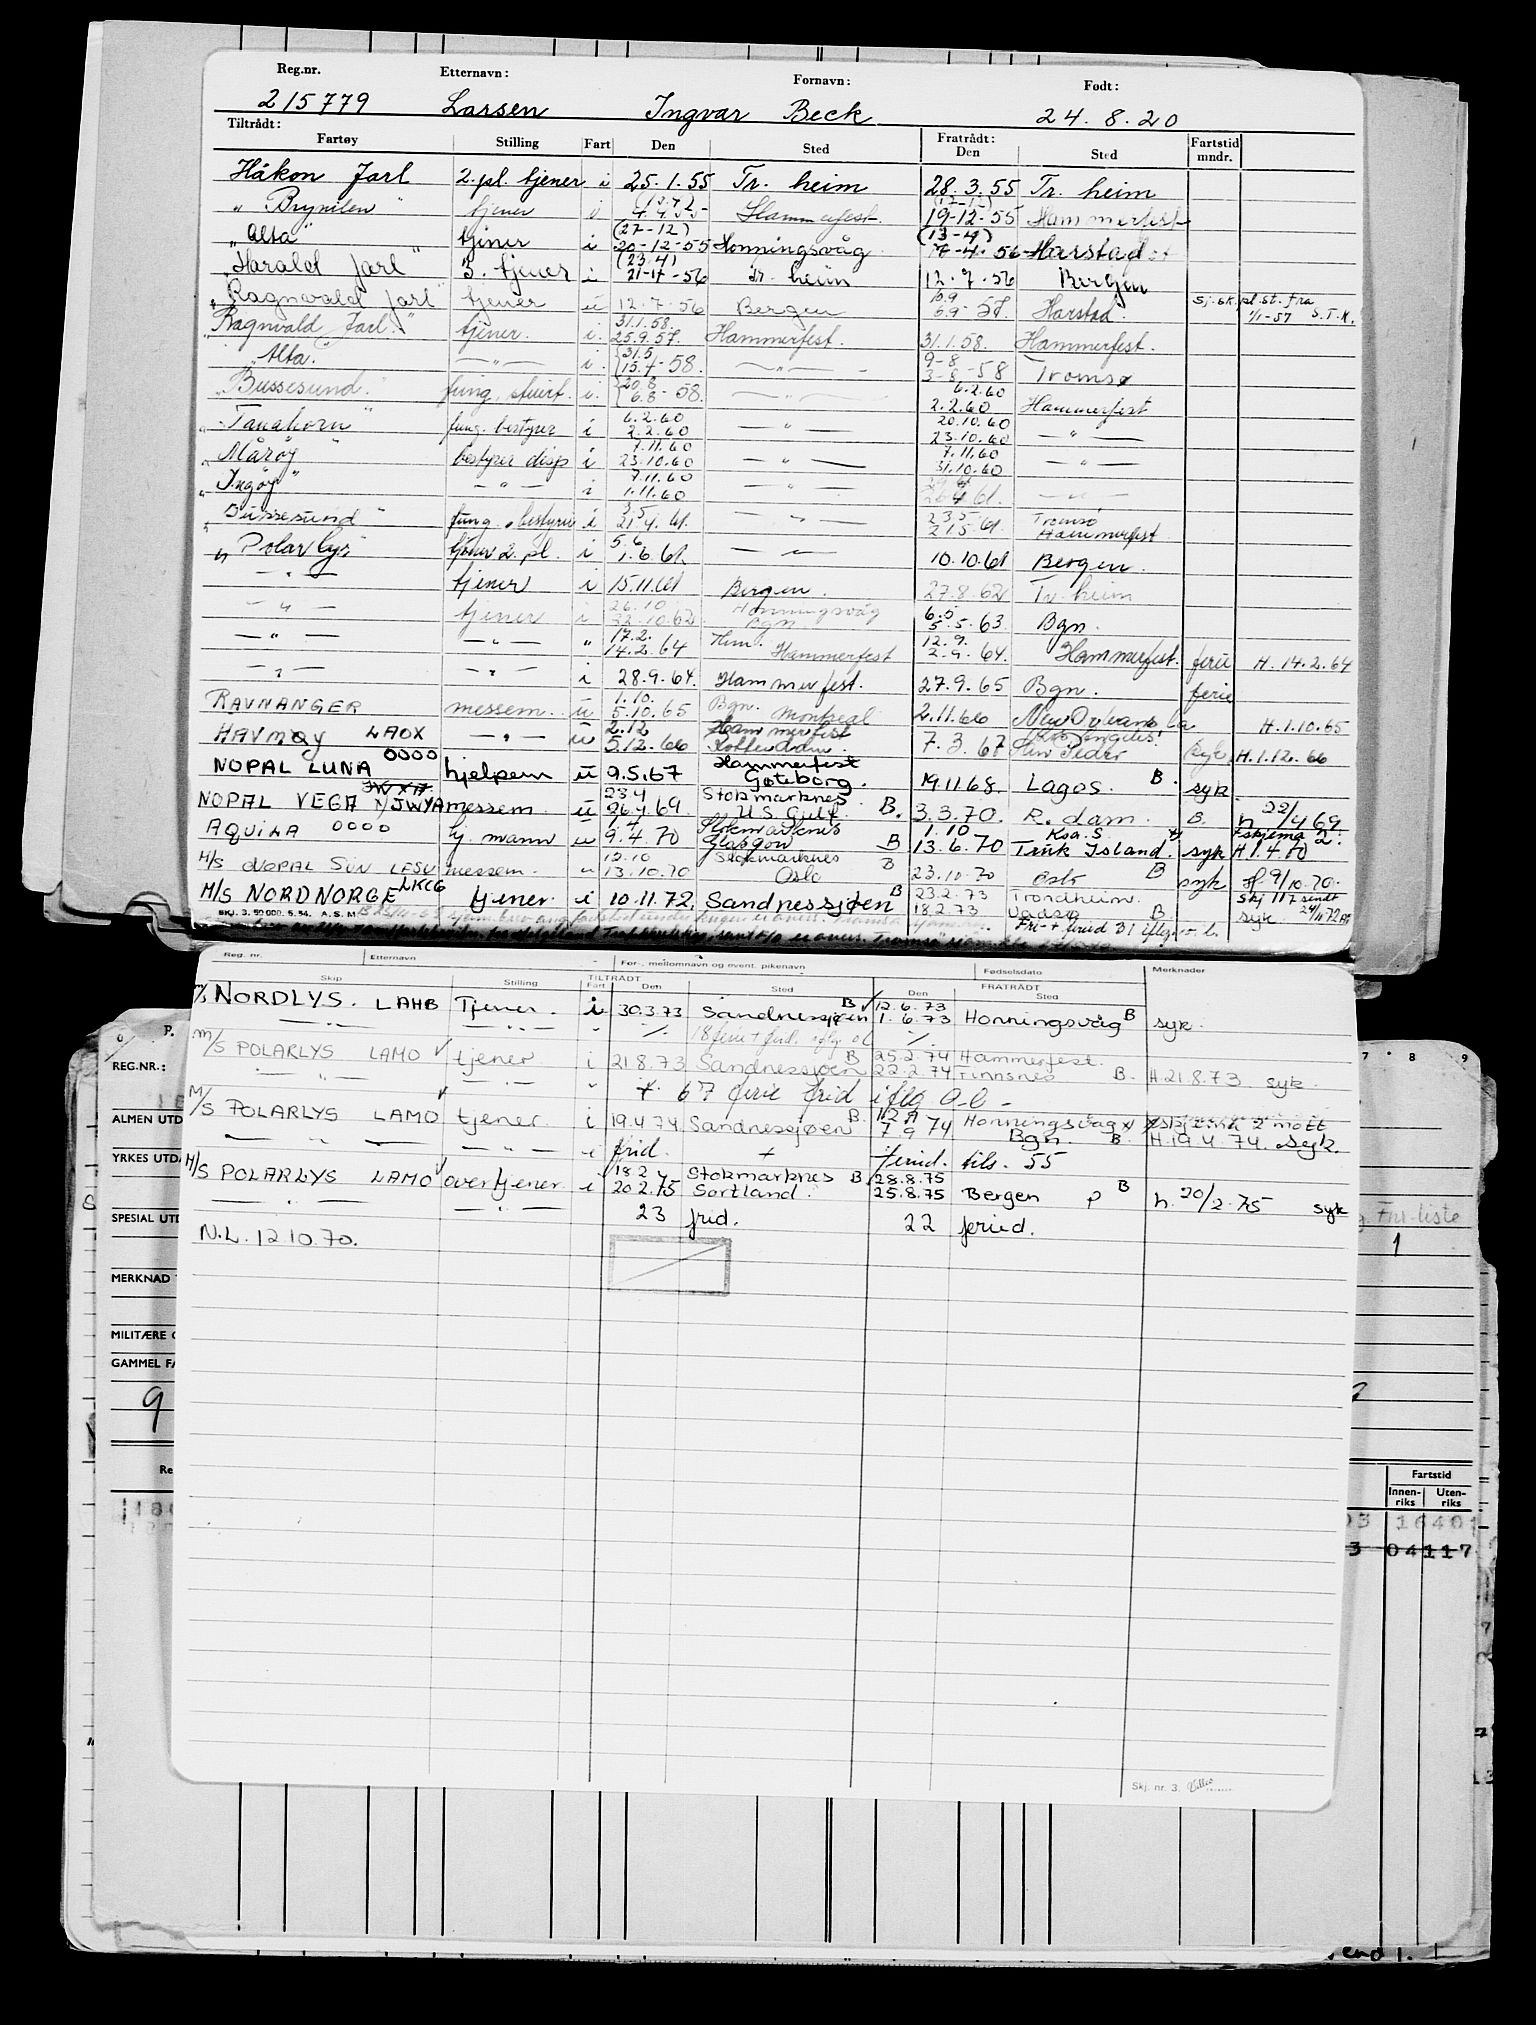 Reg.nr. Etternavn: Fornavn: Født:
215779 Larsen Ingvar Beck 24.8.20
Tiltrådt: Fratrådt:
Fartøy Stilling Fart Den Sted Den Sted Fartstid mndr.
Håkon Jarl 2.pl. tjener i 25.1.55 Tr. heim 28.3.55 Tr. heim
(17-12)
" Brynilen " tjener i Hammerfest 19-12-55 Hammerfest
(27-12) (13-4)
"Alta" tjener i 20-12-55 Honningsvåg 56 Harstad
(23/4)
"Harald Jarl" 3. tjener i 21-4-56 Tr. heim 12.7.56 Bergen
"Ragnvald Jarl" tjener 12.7.56 Bergen Harstad. Sj.sk.pl.st. fra 1/1-57 S.T.K.
31.1.58.
"Ragnvald Jarl." tjener. i. 25.9.57. Hammerfest. 31.1.58. Hammerfest.
31.5 9-8
"Alta." — " — i. 15.7-58. — " — 3-8-58 Tromsø
20.8 6.2.60
"Bussesund." fung. stuert. i. 6.8-58. — " — 2.2.60 Hammerfest
6.2.60 20.10.60
"Tanahorn" fung. bestyrer i 2.2.60 — " — 23.10.60 — " —
7.11.60 7.11.60
"Måröy" bestyrer disp i 23.10.60 — " — 31.10.60 — " —
7.11.60
"Ingöy" — " — i 1.11.60 — " — 61. — " —
3.5 23.5 Tromsø
"Bussesund" fung. bestyrer i 21.4.61. — " — 21.5.61. Hammerfest
5.6
"Polarlys" tjener 2.pl. i 1.6.61. — " — 10.10.61 Bergen.
— " — tjener i 15.11.61 Bergen. 27.8.62 Tr. heim
26.10 Honningsvåg 6.5
— " — tjener i 22.10.62 Bgn. 5.5.63. Bgn.
17.2. 12.9.
— " — — " — " 14.2.64 Hammerfest 2.9.64. Hammerfest. ferie H. 14.2.64
— " — " i 28.9.64. Hammerfest. 27.9.65 Bgn. ferie
1.10. Bgn.
RAVNANGER messem. u 5.10.65 Montreal 2.11.66 New Orleans La H.1.10.65
2.12 Hammerfest Los Angeles.
HAVMØY LAOX — " — u 5.12.66 Rotterdam. 7.3.67 San Pedro syk H.1.12.66
0000 Hammerfest
NOPAL LUNA hjelpem u 9.5.67 Gøteborg. 19.11.68. Lagos. B. syk
23.4 Stokmarknes
NOPAL VEGA JWYA messem. u 26.4.69. US Gulf. B. 3.3.70. R.dam. B. h 22/4 69.
1.4 Stokmarknes 1.10 Ksa. S. Eskjema 2.
AQUILA 0000 hj. mann u 9.4.70 Glasgow B 13.6.70 Truk Island. syk H 1.4.70
12.10 Stokmarknes B
M/S NOPAL SUN LESU messem. " 13.10.70 Oslo 23.10.70 Oslo B syk H. 9/10.70.
23.2.73 Trondheim. Skj 117 sendt
M/S NORDNORGE LKCG tjener i 10.11.72. Sandnessjøen B 18.2.73 Vadsø B. syk 24/11 72
SKJ. 3. 50 000. 5.54. A.S.M. Fri- + feried 31 iflg. o.l.
Reg. nr. Etternavn For-, mellomnavn og event. pikenavn Fødselsdato Merknader
TILTRÅDT FRATRÅDT
Skip Stilling Fart Den Sted Den Sted
12.6.73
T/S NORDLYS. LAHB Tjener. i 30.3.73 Sandnessjøen B 1.6.73 Honningsvåg B syk.
— " — — " — " ./. 18 ferie + frid. iflg ol ./.
25.2.74 Hammerfest.
M/S POLARLYS LAMO tjener i 21.8.73 Sandnessjøen B 22.2.74 Finnsnes B. H.21.8.73 syk.
— " — — " — " 67 ferie frid iflg o.l.
M/S POLARLYS LAMO tjener i 19.4.74 Sandnessjøen B. 7.9.74 Honningsvåg
Bgn. B. H.19.4.74. syk.
— " — — " — i frid. + feried. tils. 55
18.2 Stokmarknes B 28.8.75
M/S POLARLYS LAMO overtjener i 20.2.75 Sortland. 25.8.75 Bergen P B h. 20/2.75 syk
— " — — " — 23 frid. 22 feried.
N.L. 12.10.70.
Skj. nr. 3.
REG.NR.:
ALMEN UTD
YRKES UTDA
SPESIAL UTD
MERKNAD
MILITÆRE
GAMMEL FA
9
7 8 9
Fnl-liste
1
Fartstid
Innen-riks Uten-riks
16401
04117